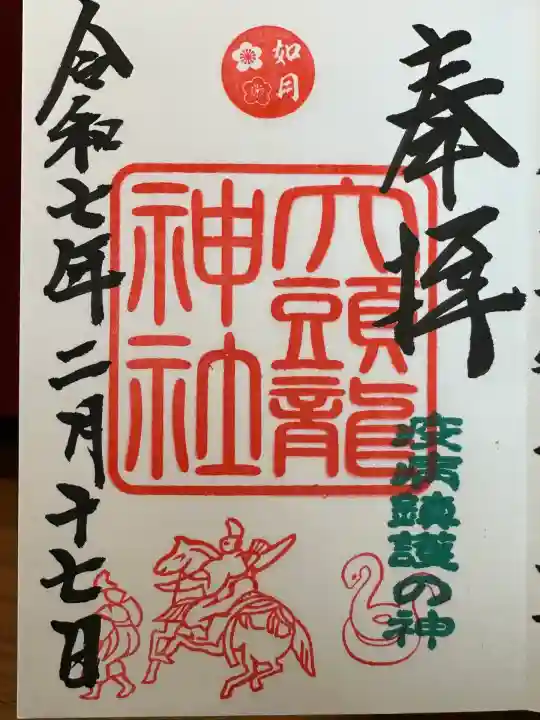 奉拝
疫病鎮護の神
如月
六頭龍
神社
令和七年二月十七日